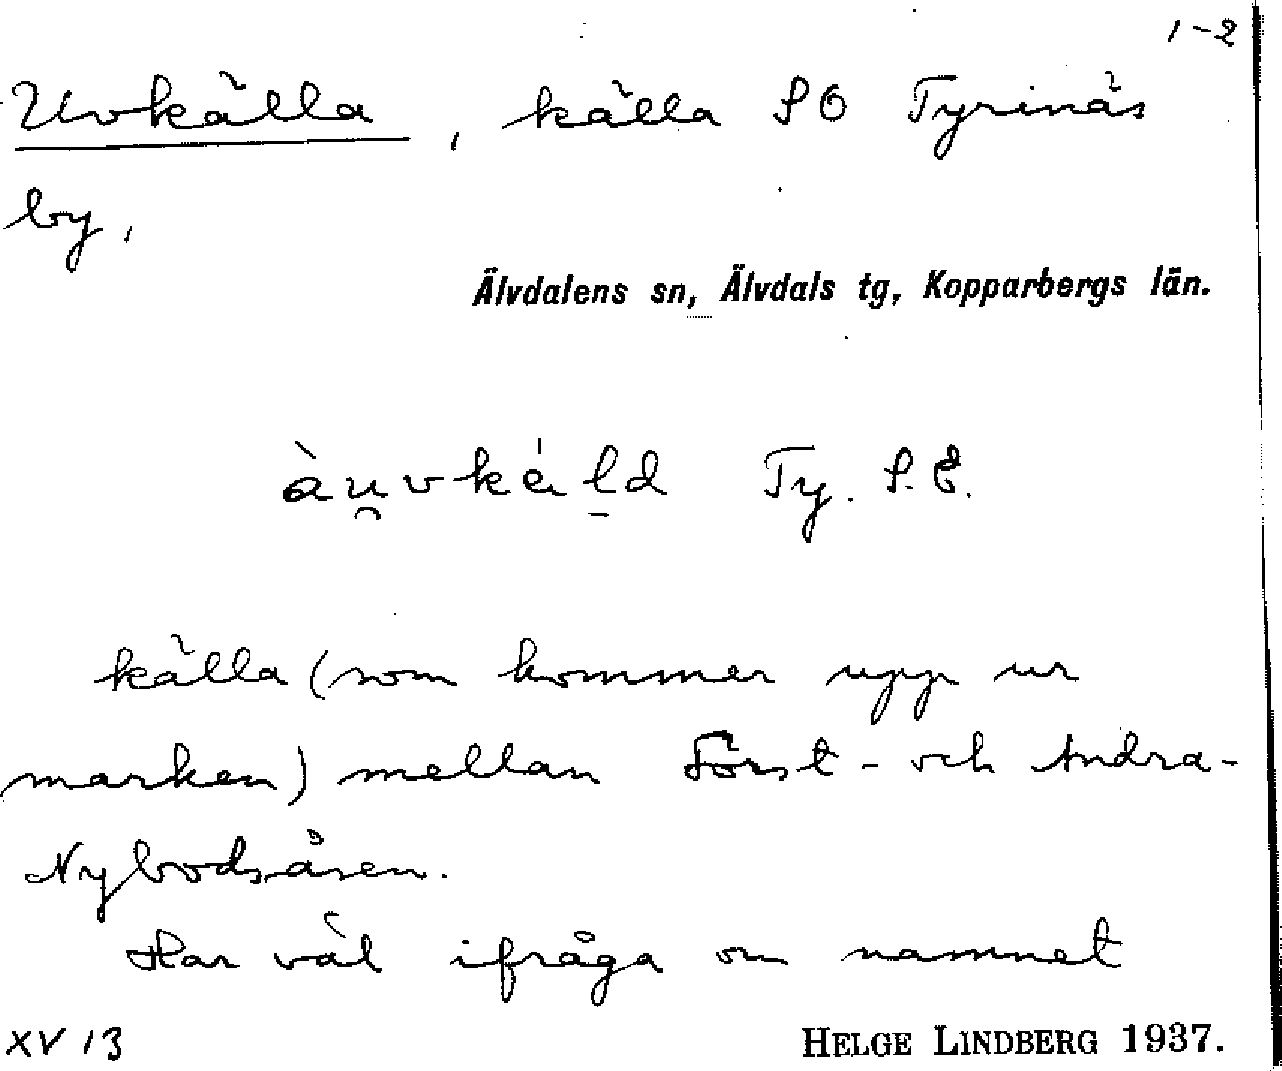 1-2
Uvkälla, källa SO Tyrinäs
by,
Älvdalens sn, Älvdals tg, Kopparbergs län.
àu̯vkáḻd Ty. S. E.
källa (som kommer upp ur
marken) mellan Först- och Andra-
Nybodsåsen.
Har väl ifråga om namnet
XV 13
HELGE LINDBERG 1937.